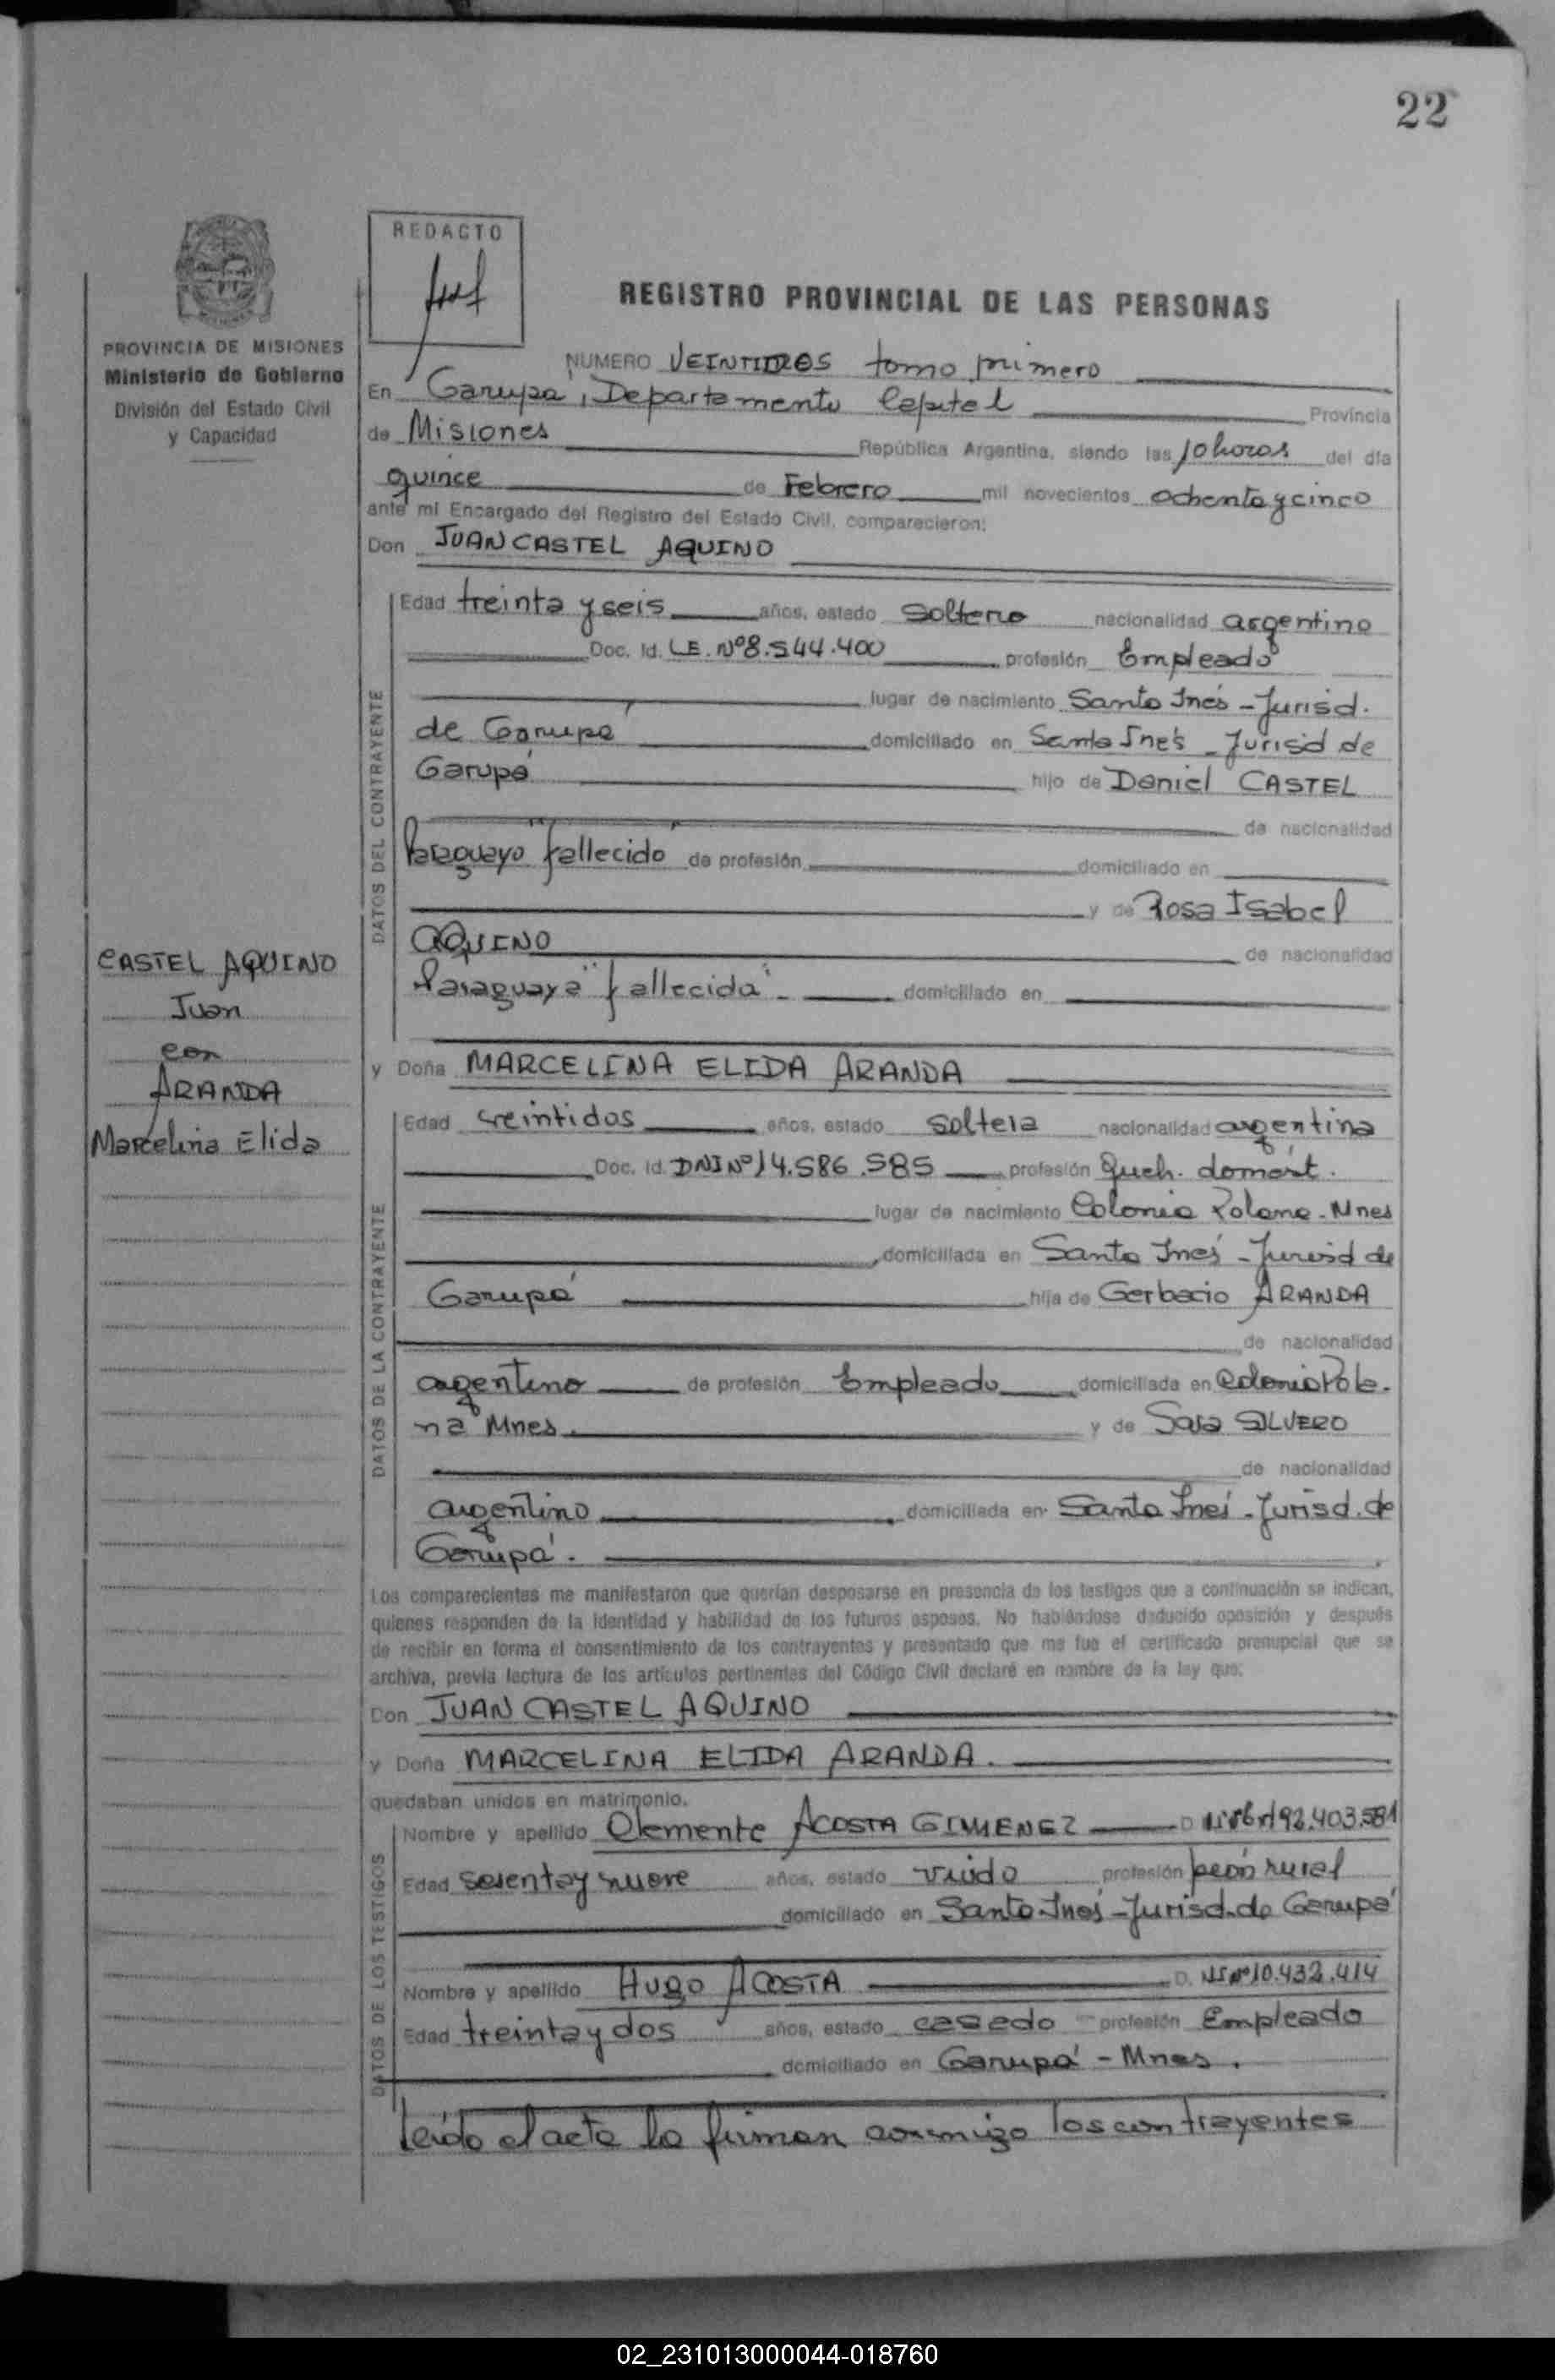 22
REDACTO
REGISTRO PROVINCIAL DE LAS PERSONAS
PROVINCIA DE MISIONES
Ministerio de Gobierno
División del Estado Civil
y Capacidad
NUMERO VEINTIDOS tomo primero
En Garupá, Departamento Capital Provincia
de Misiones República Argentina, siendo las 10 horas del día
quince de Febrero mil novecientos ochenta y cinco
ante mí Encargado del Registro del Estado Civil, comparecieron:
Don JUAN CASTEL AQUINO
DATOS DEL CONTRAYENTE
Edad treinta y seis años, estado soltero nacionalidad argentino
Doc. Id. L.E. Nº 8.544.400 profesión Empleado
lugar de nacimiento Santa Inés - Jurisd.
de Garupá domiciliado en Santa Inés - Jurisd de
Garupá hijo de Daniel CASTEL
de nacionalidad
Paraguayo "fallecido" de profesión domiciliado en
y de Rosa Isabel
AQUINO de nacionalidad
Paraguaya "fallecida". domiciliado en
CASTEL AQUINO
Juan
con
ARANDA
Marcelina Elida
y Doña MARCELINA ELIDA ARANDA
DATOS DE LA CONTRAYENTE
Edad veintidos años, estado soltera nacionalidad argentina
Doc. Id. DNI Nº 14.586.585 profesión Queh. domést.
lugar de nacimiento Colonia Polana - Mnes
domiciliada en Santa Inés - Jurisd de
Garupá hija de Gerbacio ARANDA
de nacionalidad
argentino de profesión Empleado domiciliada en Colonia Pola-
na Mnes. y de Sara SILVERO
de nacionalidad
argentino domiciliada en Santa Inés - Jurisd. de
Garupá.
Los comparecientes me manifestaron que querían desposarse en presencia de los testigos que a continuación se indican,
quienes responden de la identidad y habilidad de los futuros esposos. No habiéndose deducido oposición y después
de recibir en forma el consentimiento de los contrayentes y presentado que me fue el certificado prenupcial que se
archiva, previa lectura de los artículos pertinentes del Código Civil declaré en nombre de la ley que:
Don JUAN CASTEL AQUINO
y Doña MARCELINA ELIDA ARANDA.
quedaban unidos en matrimonio.
DATOS DE LOS TESTIGOS
Nombre y apellido Clemente ACOSTA GIMENEZ D 92.403.581
Edad sesenta y nueve años, estado viudo profesión peón rural
domiciliado en Santa Inés - Jurisd. de Garupá
Nombre y apellido HUGO ACOSTA D. Nº 10.432.414
Edad treinta y dos años, estado casado profesión Empleado
domiciliado en Garupá - Mnes.
Leído el acta la firman conmigo los contrayentes
02_231013000044-018760